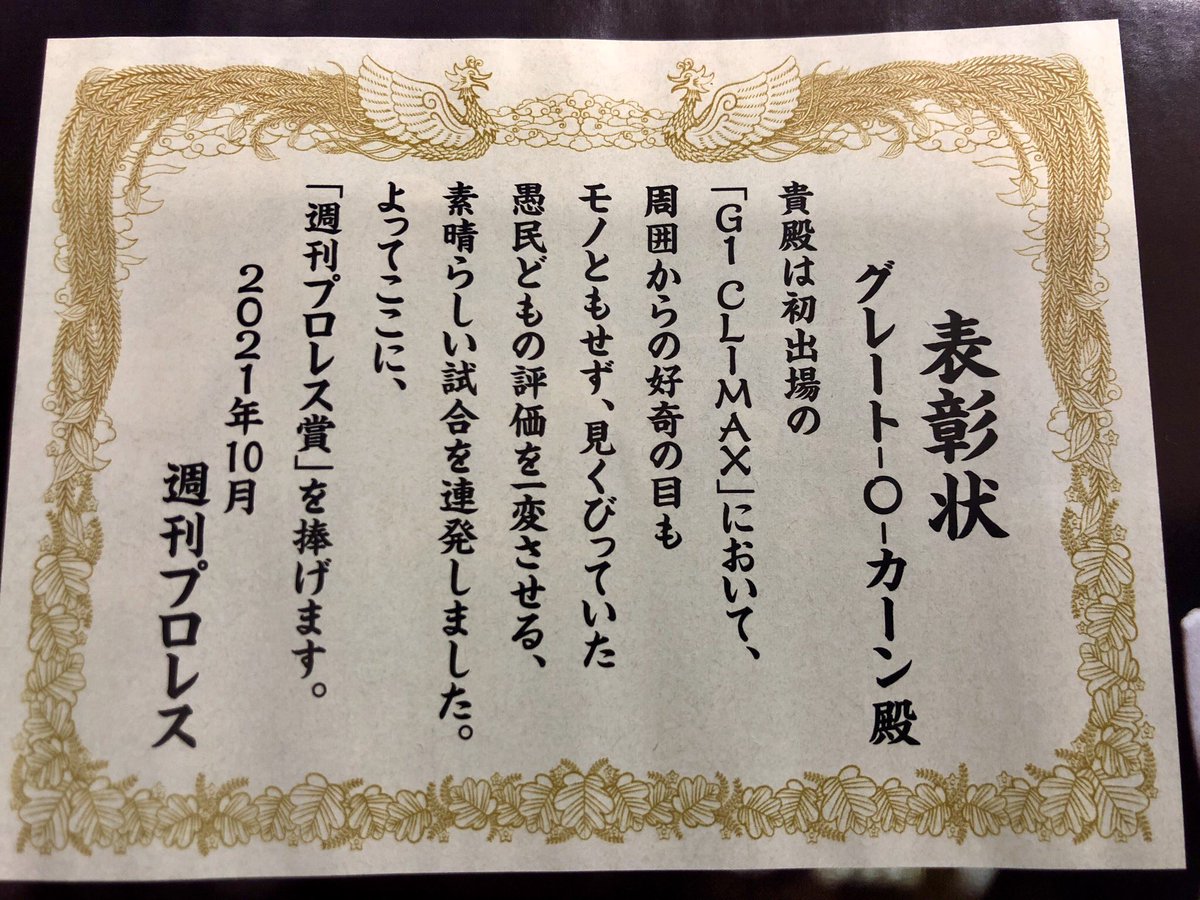 表彰状
グレート-O-カーン殿
貴殿は初出場の
「G1 CLIMAX」において、
周囲からの好奇の目も
モノともせず、見くびっていた
愚民どもの評価を一変させる、
素晴らしい試合を連発しました。
よってここに、
「週刊プロレス賞」を捧げます。
2021年10月
週刊プロレス